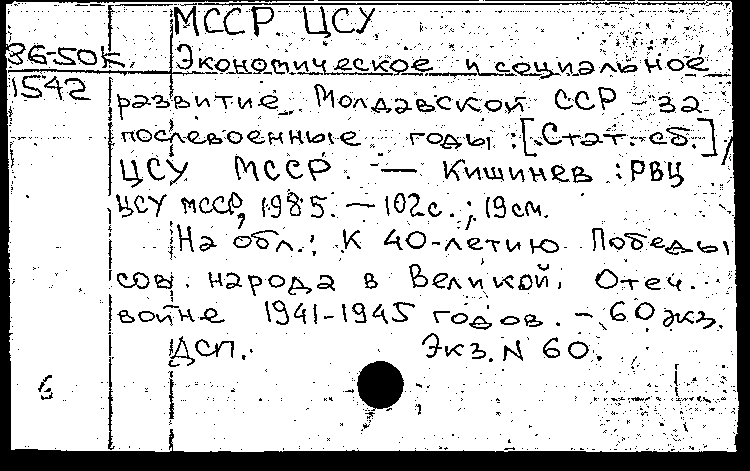 МССР. ЦСУ
86-50к Экономическое и социальное
1542 развитие Молдавской ССР за
послевоенные годы : [Стат. сб.] /
ЦСУ МССР. — Кишинев : РВЦ
ЦСУ МССР, 1985. — 102с. ; 19см.
На обл.: К 40-летию Победы
сов. народа в Великой Отеч.
войне 1941-1945 годов. - 60 экз.
ДСП. Экз. N 60.
6